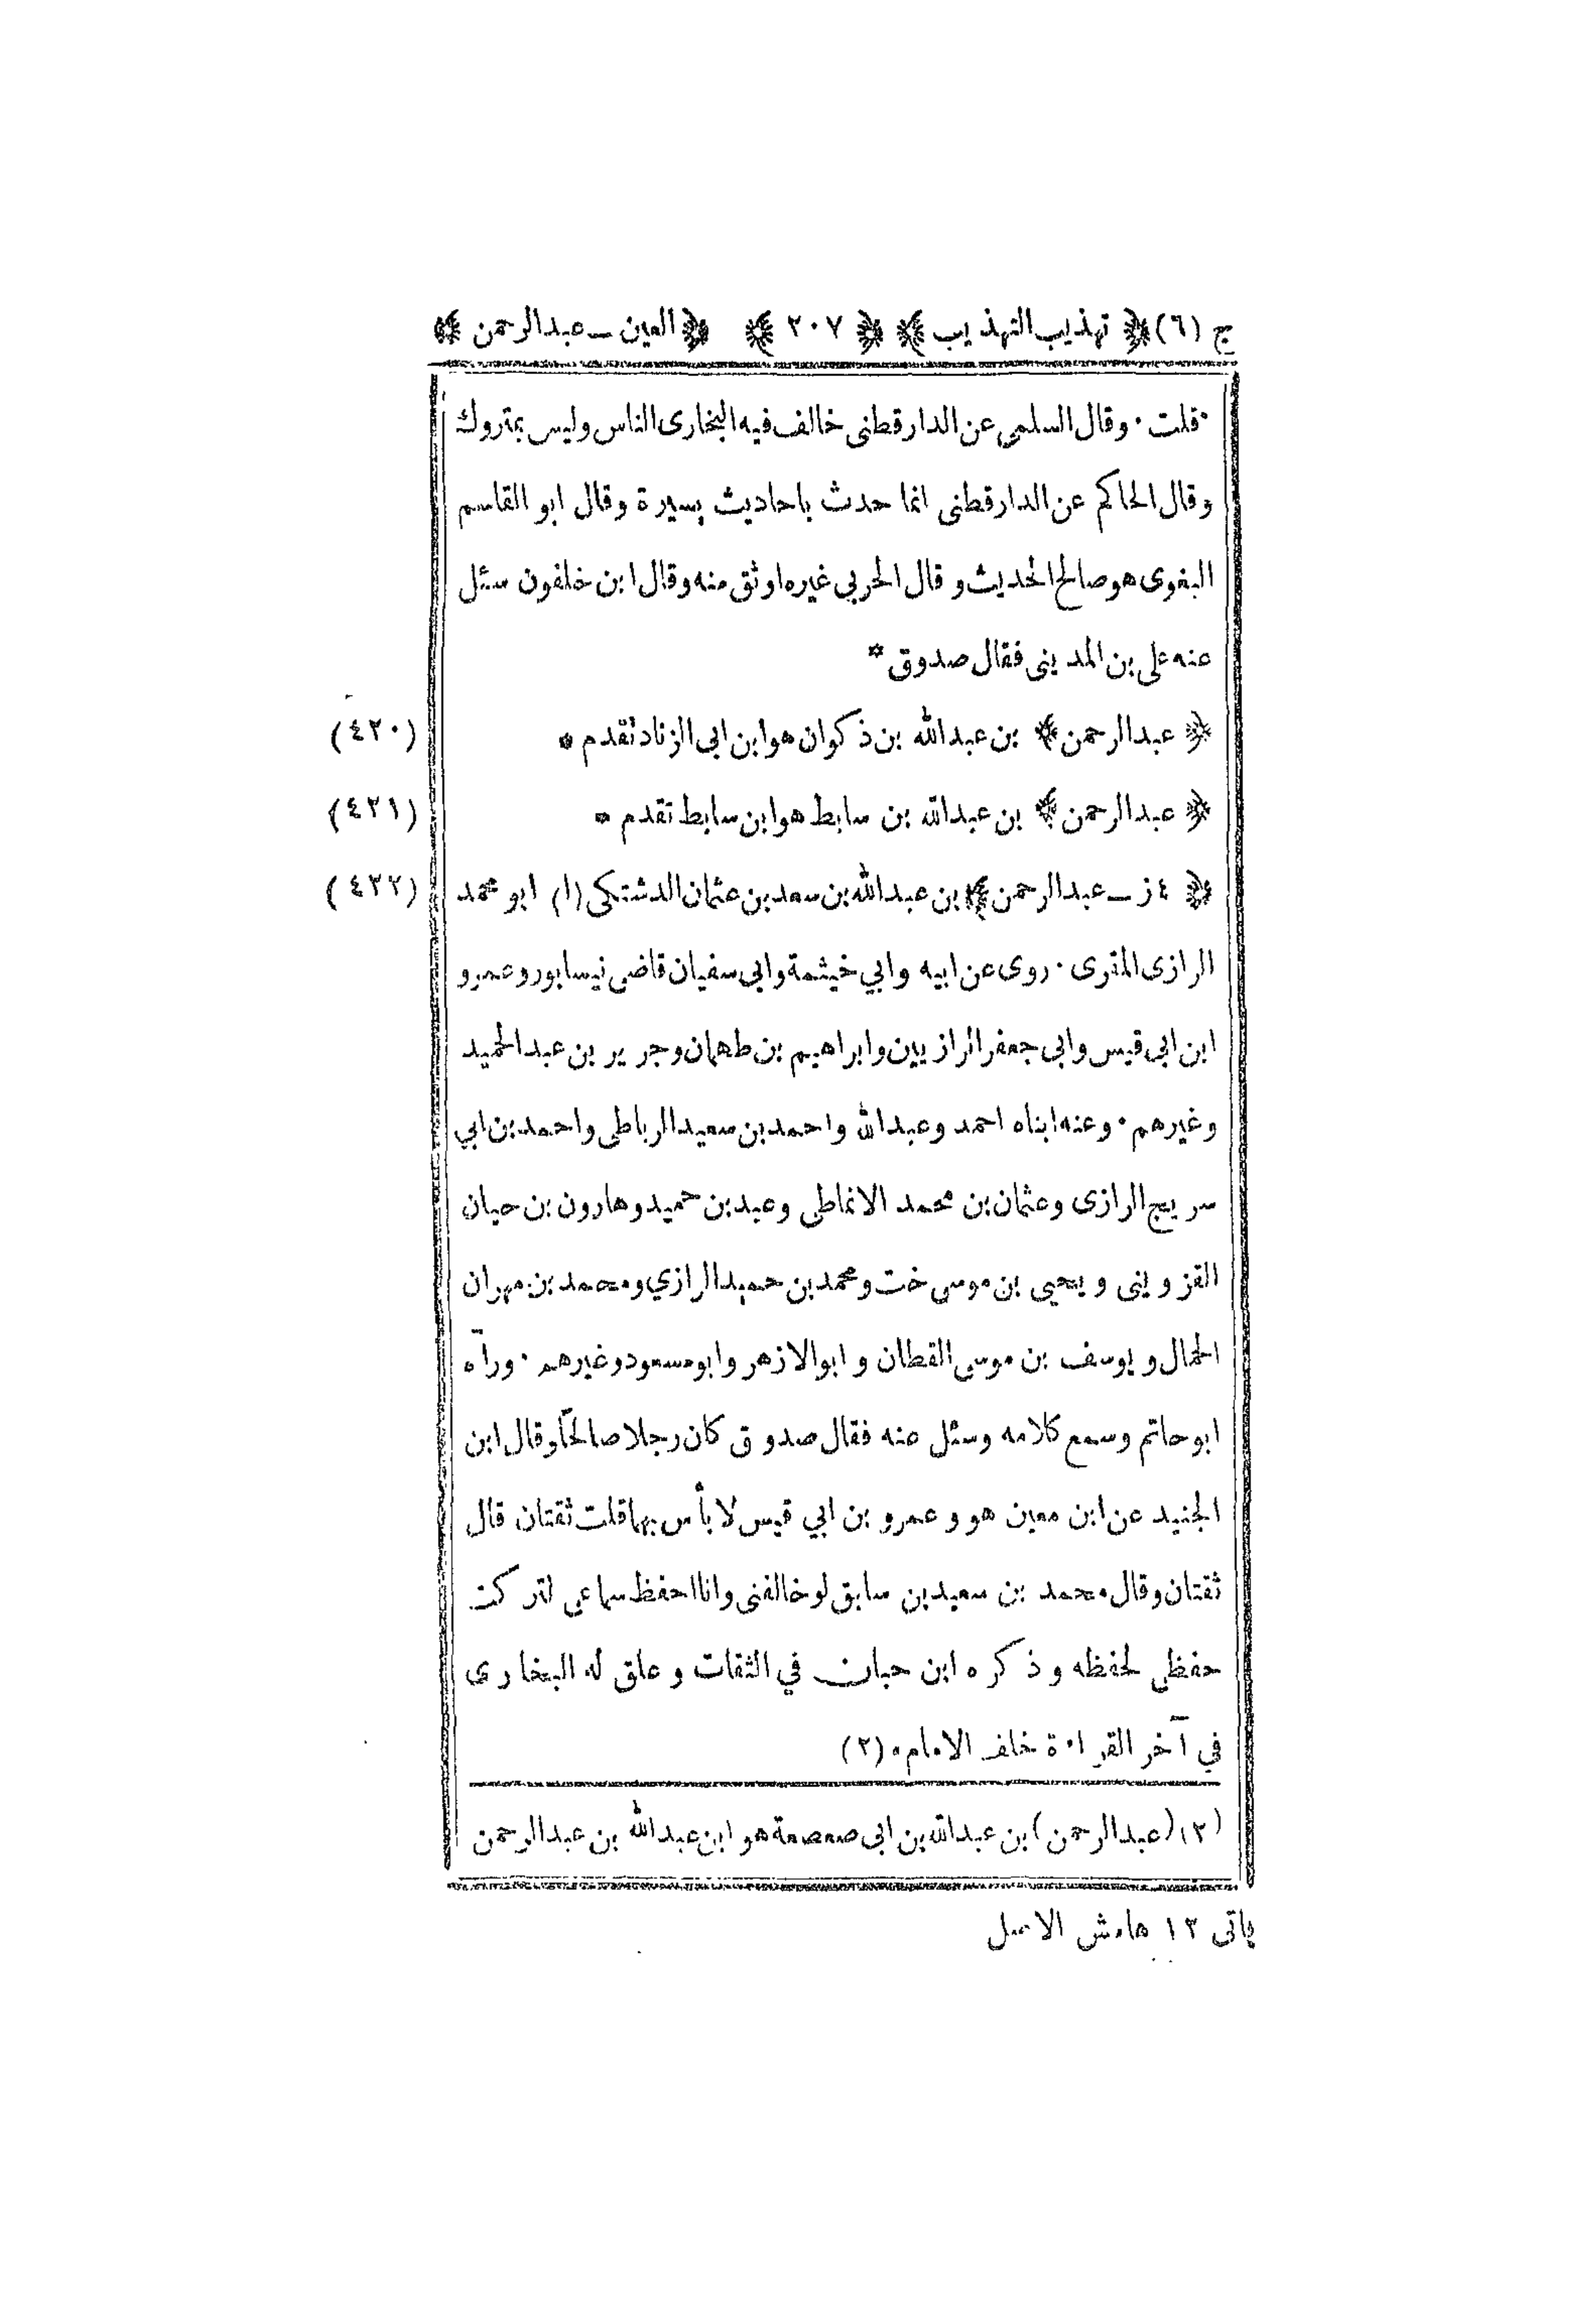 ج (٦) ﴿ تهذيب التهذيب ﴾ ﴿ ٢٠٧ ﴾ ﴿ العين ــ عبدالرحمن ﴾
٠قلت٠ وقال السلمي عن الدارقطنى خالف فيه البخارى الناس وليس بمتروك
وقال الحاكم عن الدارقطنى انما حدث باحاديث يسيرة وقال ابو القاسم
البغوى هوصالح الحديث وقال الحربي غيره اوثق منه وقال ابن خلفون سئل
عنه على بن المديني فقال صدوق *
﴿ عبدالرحمن ﴾ بن عبدالله بن ذكوان هو ابن ابي الزناد تقدم * (٤٢٠)
﴿ عبدالرحمن ﴾ بن عبدالله بن سابط هو ابن سابط تقدم * (٤٢١)
﴿ ٤ ز ــ عبدالرحمن ﴾ بن عبدالله بن سعد بن عثمان الدشتكى (١) ابو محمد (٤٢٢)
الرازى المقرى ٠ روى عن ابيه وابي خيثمة وابي سفيان قاضى نيسابور وعمرو
ابن ابي قيس وابي جعفر الرازيين وابراهيم بن طهمان وجرير بن عبدالحميد
وغيرهم ٠ وعنه ابناه احمد وعبدالله واحمد بن سعيد الرباطى واحمد بن ابي
سريج الرازى وعثمان بن محمد الانماطى وعبد بن حميد وهارون بن حيان
القزوينى ويحيى بن موسى خت ومحمد بن حميد الرازي ومحمد بن مهران
الجمال ويوسف بن موسى القطان وابوالازهر وابومسعود وغيرهم ٠ ورآه
ابوحاتم وسمع كلامه وسئل عنه فقال صدوق كان رجلا صالحاً وقال ابن
الجنيد عن ابن معين هو وعمرو بن ابي قيس لا بأس بهما قلت ثقتان قال
ثقتان وقال محمد بن سعيد بن سابق لو خالفنى وانا احفظ سماعى لتركت
حفظى لحفظه وذكره ابن حبان في الثقات وعلق له البخارى
في آخر القراءة خلف الامام ٠ (٢)
(٢) (عبدالرحمن) بن عبدالله بن ابي صعصعة هو ابن عبدالله بن عبدالرحمن
ياتى ١٢ هامش الاصل